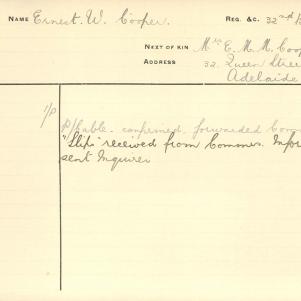 NAME Ernest. W. Cooper. REG. &C. 32nd
NEXT OF KIN Mrs E. M. M. Coop
ADDRESS 32. Queen Stree
Adelaide
1/P P/Cable. confirmed, forwarded Com
"Slip" received from Commrs. Infor
sent Inquirer